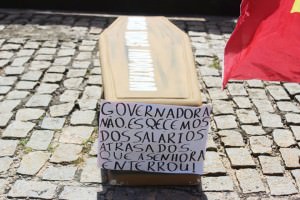 GOVERNADORA
NÃO ESQECEMOS
DOS SALÁRIOS
ATRASADOS
QUE A SENHORA
ENTERROU!